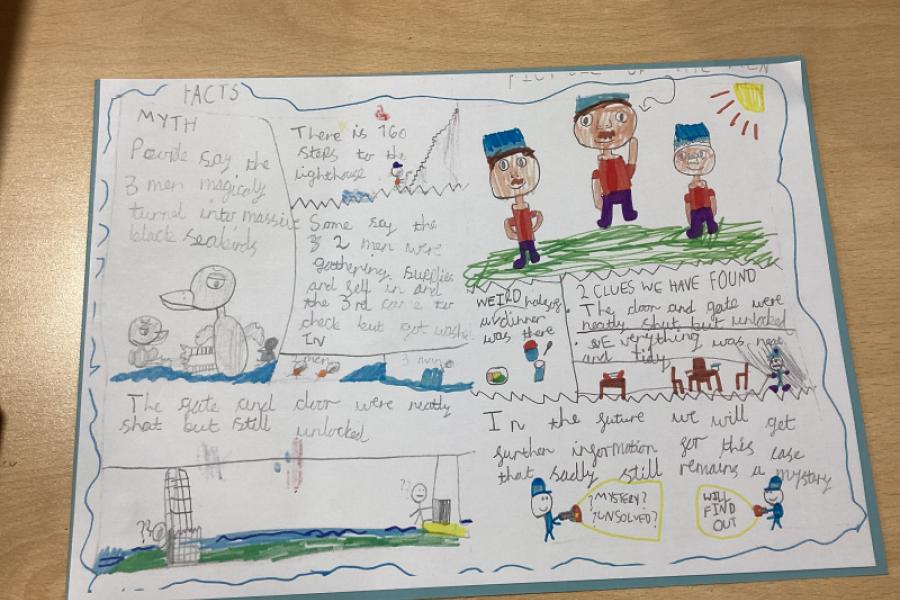 FACTS
MYTH
Peovle say the
3 men magicaly
turnd into massive
black seabirds
There is 160
steps to the
lighthouse
Some say the
2 men were
gathering supplies
and fell in and
the 3rd came to
check but got washed
In
2 men
3 men
The gate and door were neatly
shut but still unlocked
??
??
PICTURE OF THE MEN
WEIRD
dinner
was there
2 CLUES WE HAVE FOUND
The door and gate were
neatly shut but unlocked
EVerything was neat
and tidy
In the future we will get
further information for this case
that sadly still remains a mystery
?MYSTERY?
?UNSOLVED?
WILL
FIND
OUT